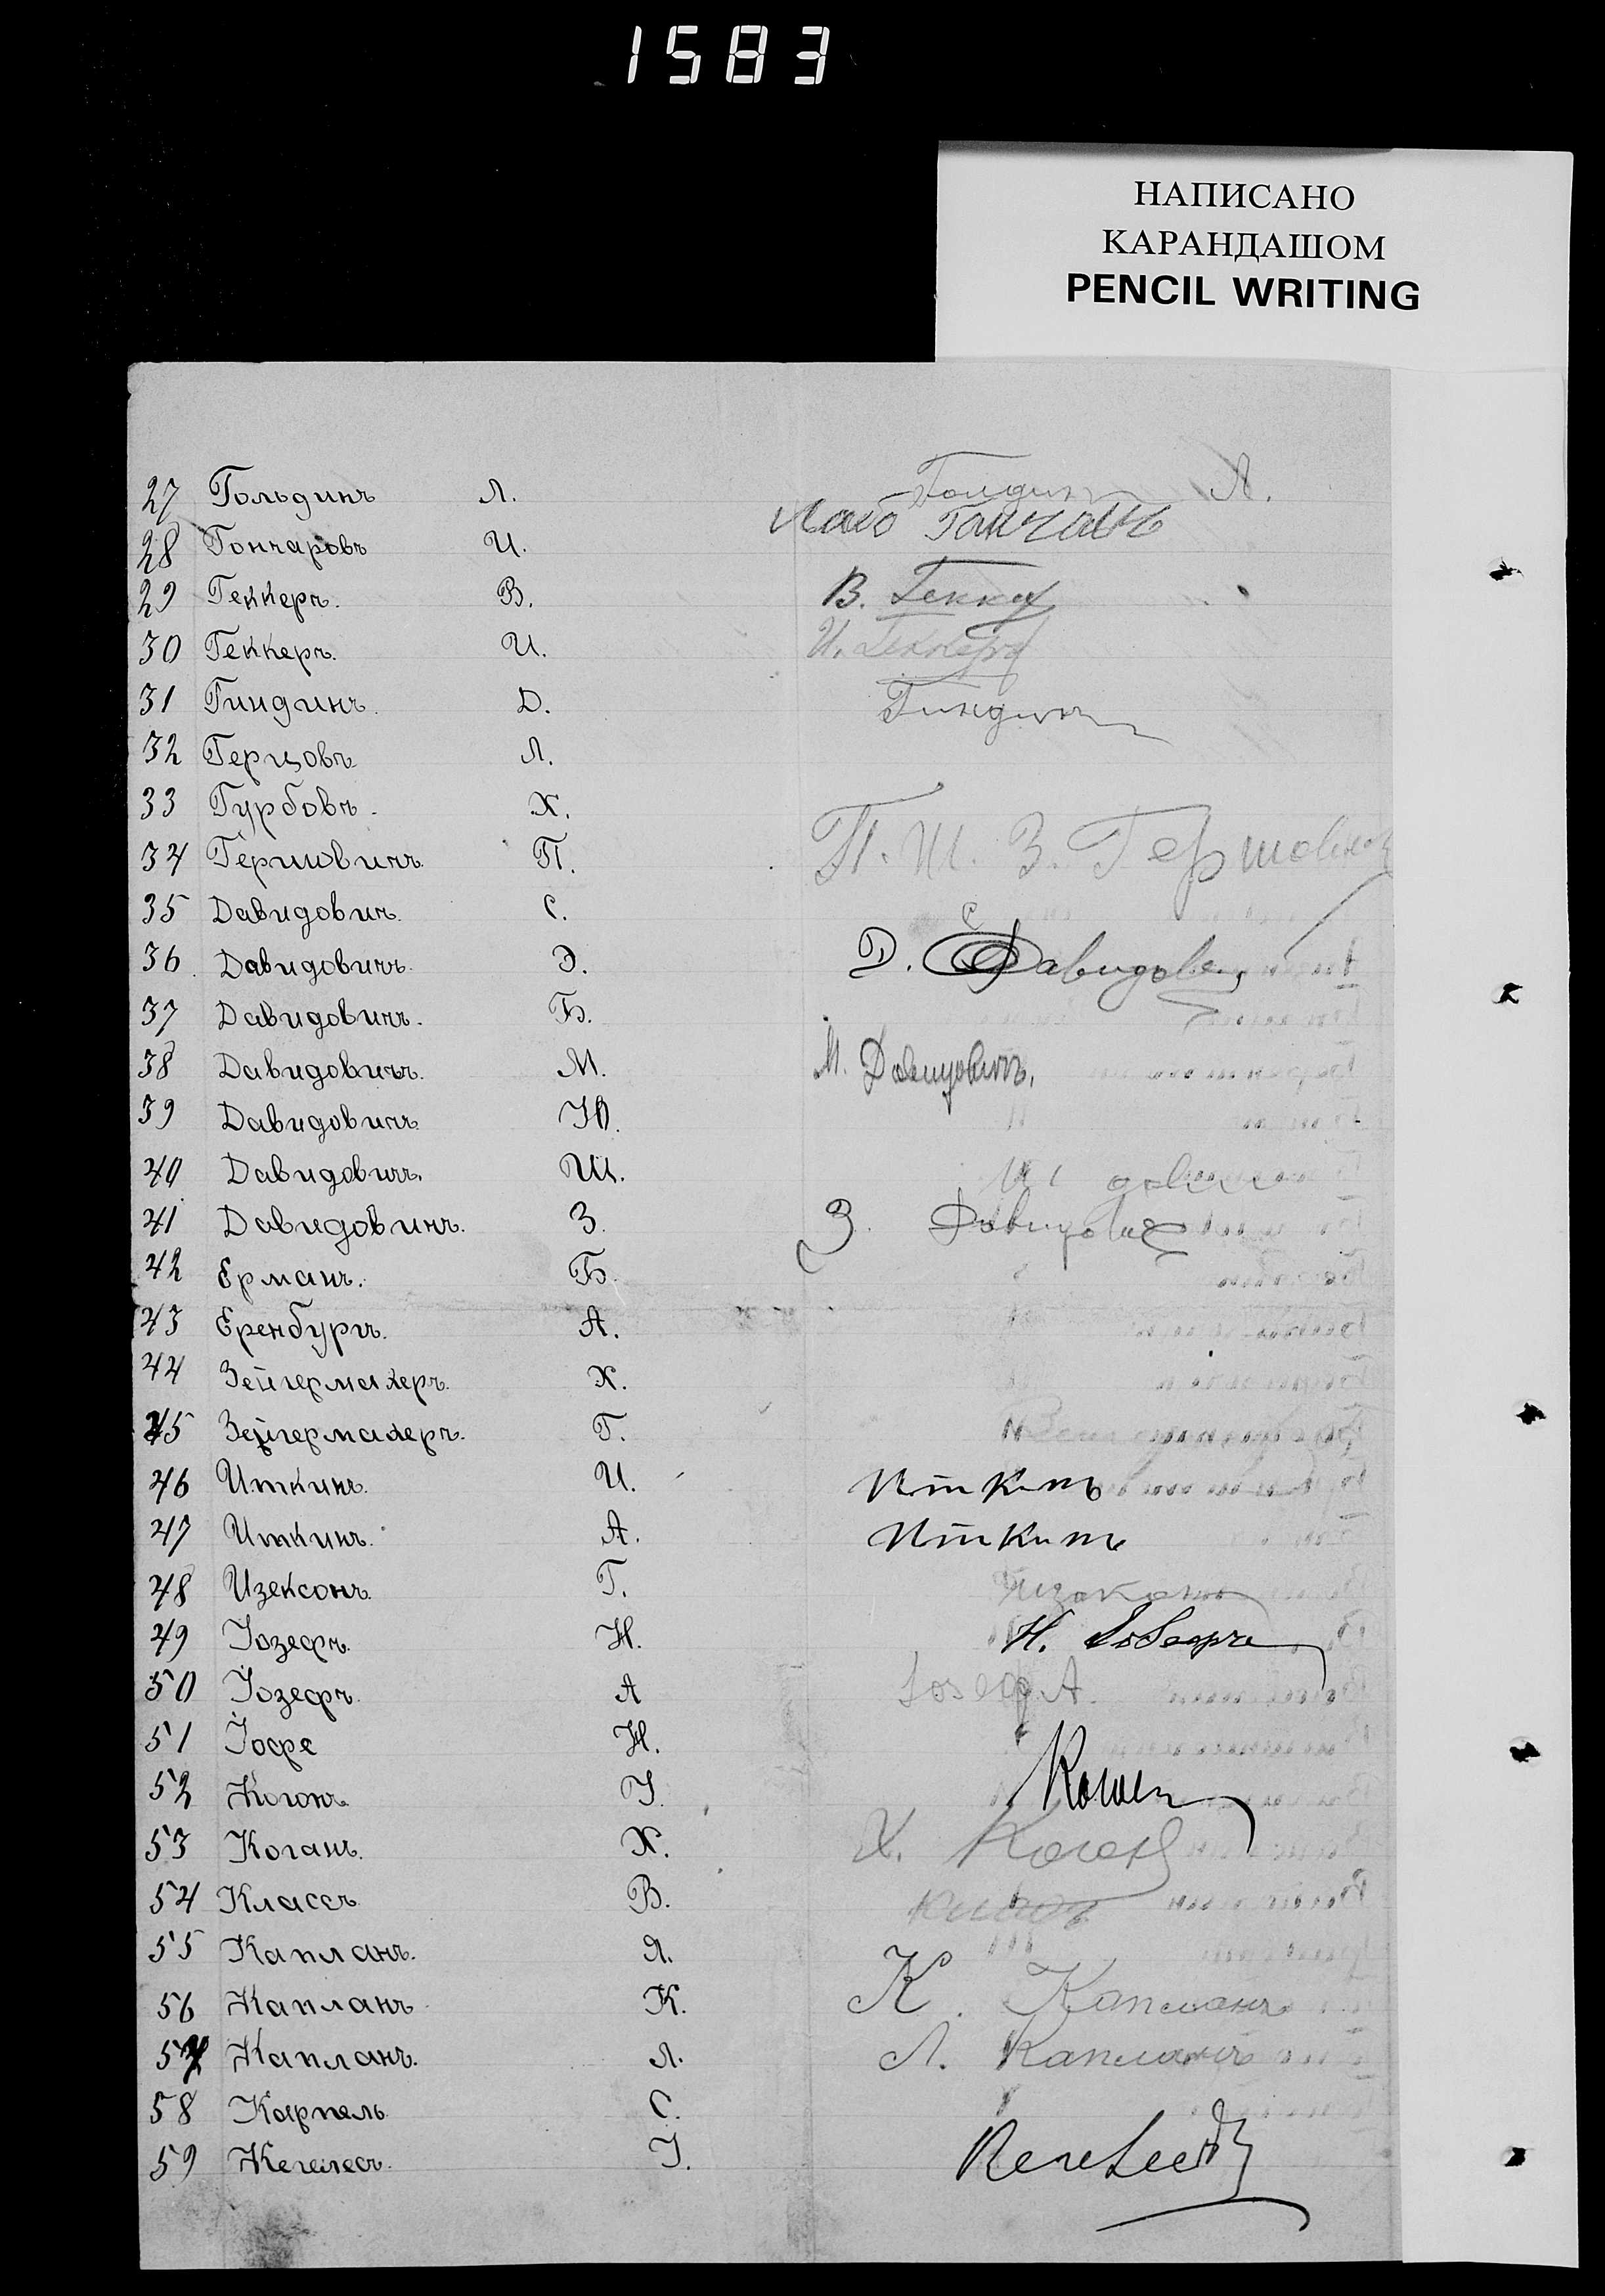 1583
НАПИСАНО
КАРАНДАШОМ
PENCIL WRITING
27 Гольдинъ Л. Голдинъ Л.
28 Гончаровъ И.
29 Геккеръ. В. В. Геккер
30 Геккеръ. И. И. Геккеръ
31 Гиндинъ. Д. Гиндинъ
32 Герцовъ Л.
33 Гурбовъ. Х.
34 Гершовичъ. П. П. Ш. З. Гершович
35 Давидовичъ. С.
36 Давидовичъ. Э. Д. Давидович
37 Давидовичъ. Б.
38 Давидовичъ. М. М. Давидовичъ.
39 Давидовичъ Ю.
40 Давидовичъ. Ш.
41 Давидовичъ. З. З. Давидович
42 Ерманъ. Б.
43 Еренбургъ. А.
44 Зейгермахеръ. Х.
45 Зейгермахеръ. Г.
46 Иткинъ. И. Иткинъ
47 Иткинъ. А. Иткинъ
48 Изексонъ. Г.
49 Іозефъ. Н. Н. Іозефъ
50 Іозефъ. А А.
51 Іофе Н.
52 Коганъ І. Коган
53 Коганъ. Х. Х. Коган
54 Классъ В.
55 Капланъ. Я.
56 Капланъ К. К. Капланъ
57 Капланъ. Л. Л. Капланъ
58 Карпель С.
59 Кегелесъ. І.